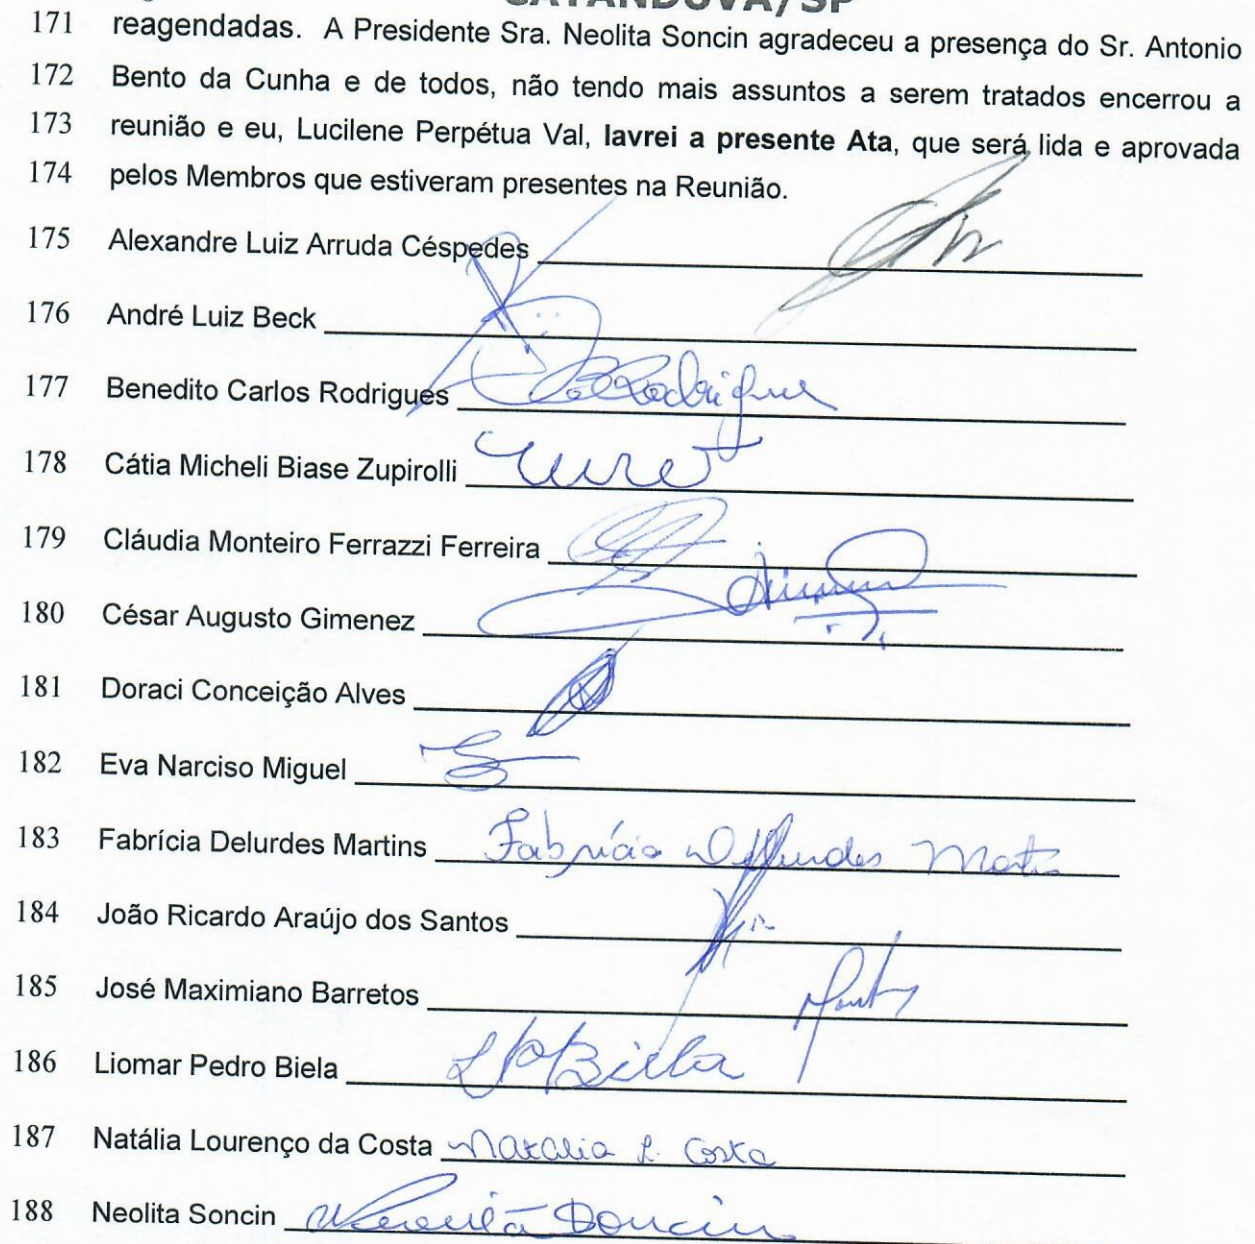 CATANDUVA/SP
171 reagendadas. A Presidente Sra. Neolita Soncin agradeceu a presença do Sr. Antonio
172 Bento da Cunha e de todos, não tendo mais assuntos a serem tratados encerrou a
173 reunião e eu, Lucilene Perpétua Val, lavrei a presente Ata, que será lida e aprovada
174 pelos Membros que estiveram presentes na Reunião.
175 Alexandre Luiz Arruda Céspedes
176 André Luiz Beck
177 Benedito Carlos Rodrigues BCRodrigues
178 Cátia Micheli Biase Zupirolli
179 Cláudia Monteiro Ferrazzi Ferreira
180 César Augusto Gimenez
181 Doraci Conceição Alves
182 Eva Narciso Miguel
183 Fabrícia Delurdes Martins Fabrícia Delurdes Martins
184 João Ricardo Araújo dos Santos
185 José Maximiano Barretos
186 Liomar Pedro Biela LPBiela
187 Natália Lourenço da Costa Natalia L. Costa
188 Neolita Soncin Neolita Soncin